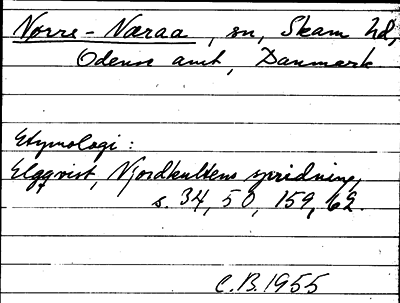 Nørre-Næraa, sn, Skam hd,
Odense amt, Danmark
Etymologi:
Elgqvist, Njordkultens spridning,
s. 34, 50, 159, 62.
C.B. 1955